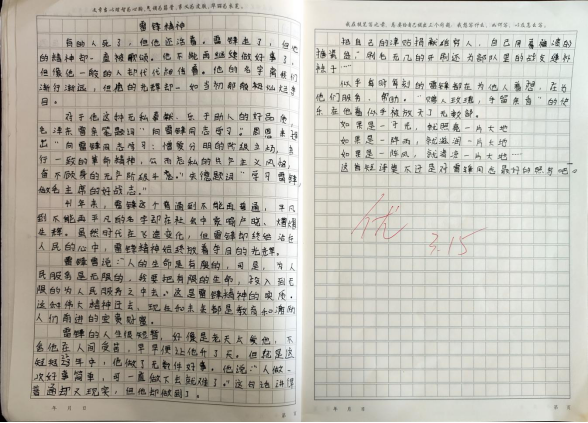 雷锋精神
有的人死了，但他还活着。雷锋走了，但他
的精神却一直被歌颂。他不能再继续做好事了，
但像他一般的人却代代相传着。他的名字离我们
渐行渐远，但他的光辉却一如当初那般灿烂夺
目。
对于他这种无私奉献、乐于助人的好品质，
毛泽东曾亲笔题词“向雷锋同志学习”。周恩来提
出“向雷锋同志学习：憎爱分明的阶级立场，言
行一致的革命精神，公而忘私的共产主义风格，
奋不顾身的无产阶级斗志。”朱德题词“学习雷锋
做毛主席的好战士。”
年来，雷锋这个普通到不能再普通，平凡
到不能再平凡的名字却在社会中家喻户晓，熠熠
生辉。虽然时代在飞速变化，但雷锋却终始活在
人民的心中，雷锋精神始终放着夺目的光辉。
雷锋曾说：“人的生命是有限的，可是，为人
民服务是无限的，我要把有限的生命，投入到无
限的为人民服务之中去。”这是雷锋精神的实质。
这种伟大精神过去、现在和未来都是教育和激励
人们前进的宝贵财富。
雷锋的人生很短暂，好像是老天太爱他，不
舍他在人间受苦，早早便让他升了天。但就是这
短短 年中，他做了无数件好事。他说：“人做一
次好事简单，可一直做下去就难了。”这句话讲得
普通却又现实，但他却做到了。
把自己的津贴捐献给穷人，自己用着破漆的
搪瓷缸：刚毛无几的牙刷还为部队里的战友缝补
袜子……
似乎有时有刻的雷锋都在为他人着想，在为
他们服务，帮助。“赠人玫瑰，手留余香”的快
乐在他看似乎被放大了无数倍。
如果是一子光，就照亮一片大地
如果是一阵雨，就滋润一片大地
如果是一阵风，就
这首短诗莫不过是对雷锋同志最好的照写吧。
优
3.15
年 月 日
第 页
年 月 日
第 页